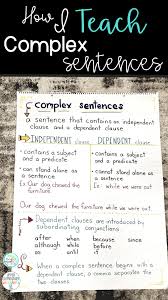 How I Teach
Complex
sentences
Complex sentences
a sentence that contains an independent
clause and a dependent clause
INDEPENDENT clause
DEPENDENT clause
• contains a subject
and a predicate
• can stand alone as
a sentence
Ex: Our dog chewed the
furniture
• contains a subject
and a predicate
• cannot stand alone
as a sentence
Ex: while we were out
Our dog chewed the furniture while we were out.
Dependent clauses are introduced by
subordinating conjunctions
after although because since
when while before until if
When a complex sentence begins with a
dependent clause, a comma separates the two
clauses.